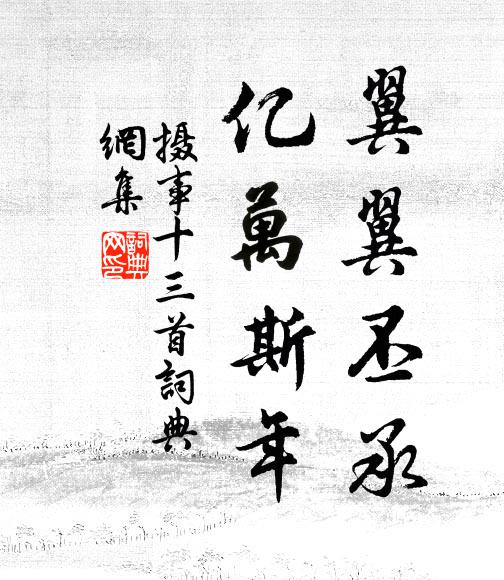 翼翼丕承
亿萬斯年
摄事十三首詞典
網集
詞典
网印